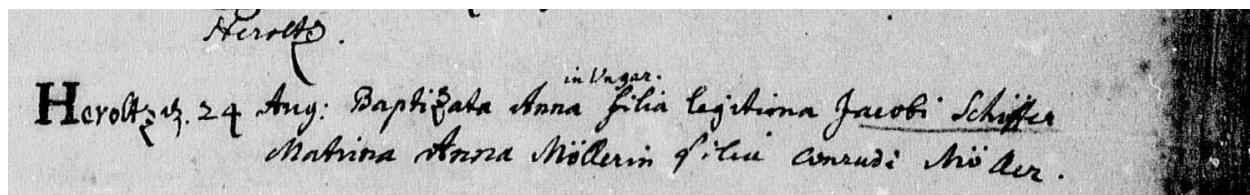 Heroltz.
in Ungar.
Heroltz. 24 Aug: Baptizata Anna filia legitima Jacobi Schiffer
Matrina Anna Möllerin filia Conradi Möller.